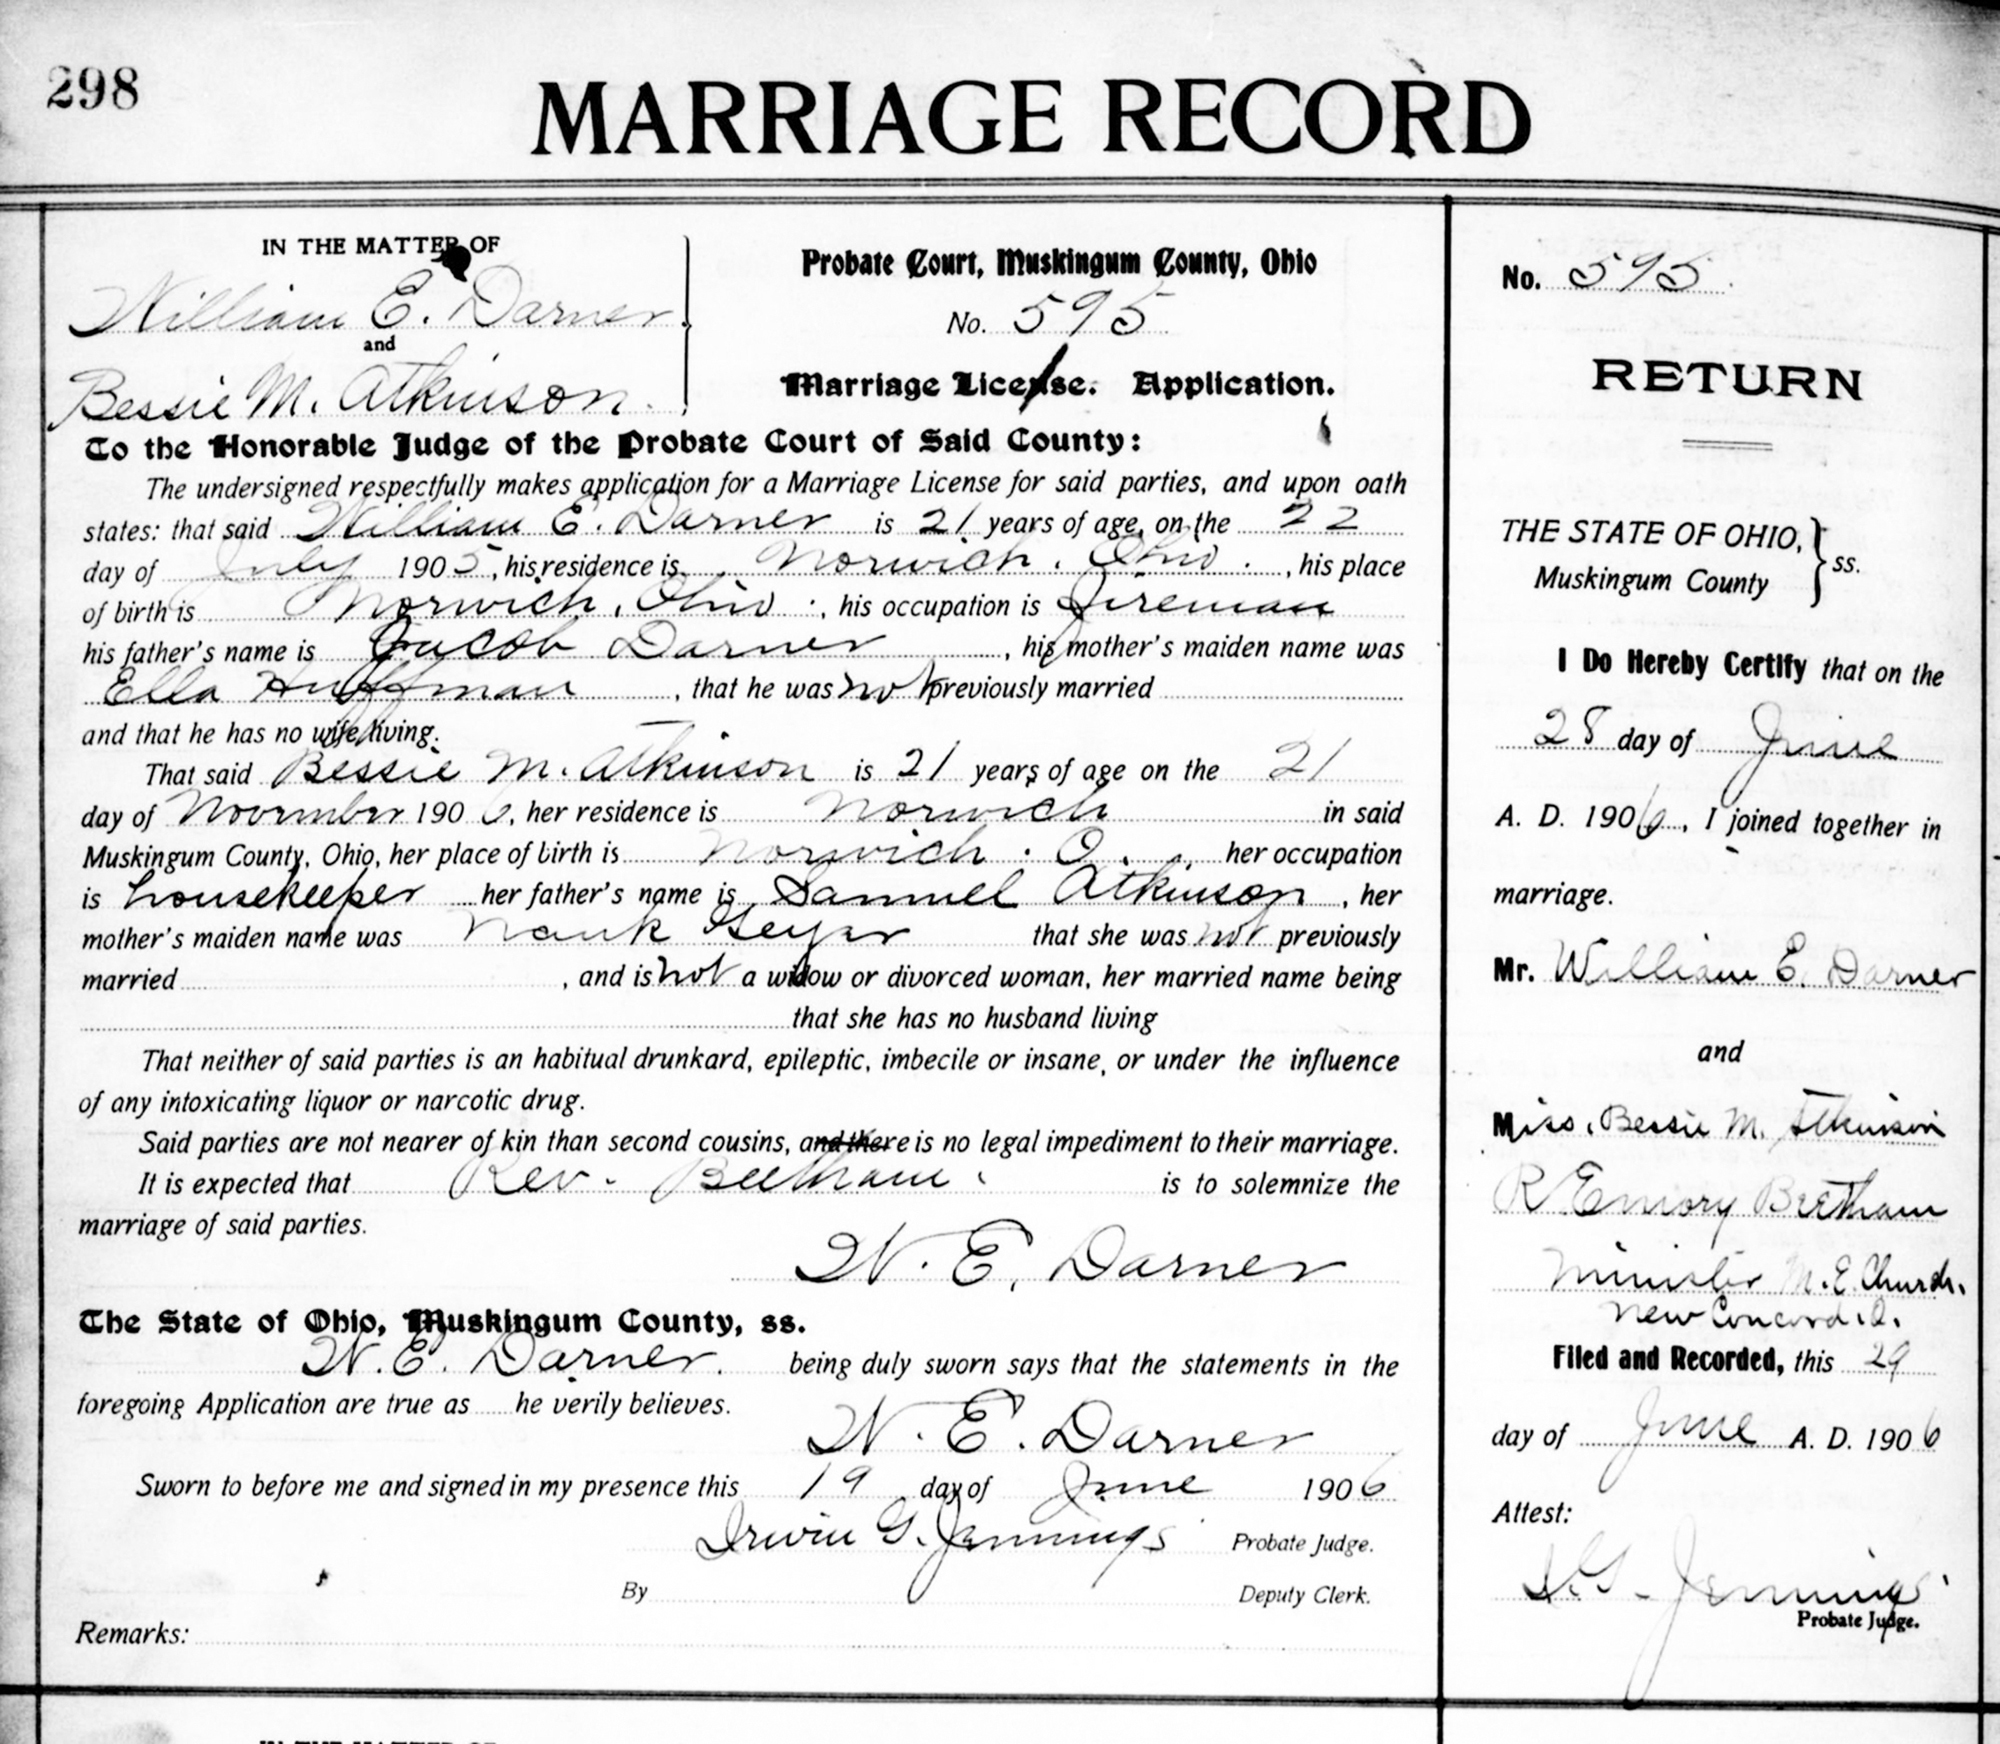 298
MARRIAGE RECORD
IN THE MATTER OF
William E. Darner
and
Bessie M. Atkinson.
Probate Court, Muskingum County, Ohio
No. 595
Marriage License. Application.
To the Honorable Judge of the Probate Court of Said County:
The undersigned respectfully makes application for a Marriage License for said parties, and upon oath
states: that said William E. Darner is 21 years of age, on the 22
day of July 1905, his residence is Norwich, Ohio. , his place
of birth is Norwich, Ohio , his occupation is Fireman
his father's name is Jacob Darner , his mother's maiden name was
Ella Huffman , that he was not previously married
and that he has no wife living.
That said Bessie M. Atkinson is 21 years of age on the 21
day of November 1906, her residence is Norwich in said
Muskingum County, Ohio, her place of birth is Norwich. O. , her occupation
is housekeeper her father's name is Samuel Atkinson , her
mother's maiden name was Geyer that she was not previously
married , and is not a widow or divorced woman, her married name being
that she has no husband living
That neither of said parties is an habitual drunkard, epileptic, imbecile or insane, or under the influence
of any intoxicating liquor or narcotic drug.
Said parties are not nearer of kin than second cousins, and there is no legal impediment to their marriage.
It is expected that Rev. Beetham. is to solemnize the
marriage of said parties.
W. E. Darner
The State of Ohio, Muskingum County, ss.
W. E. Darner. being duly sworn says that the statements in the
foregoing Application are true as he verily believes.
W. E. Darner
Sworn to before me and signed in my presence this 19 day of June 1906
Irwin G. Jennings Probate Judge.
By Deputy Clerk.
Remarks:
No. 595
RETURN
THE STATE OF OHIO, } ss.
Muskingum County
I Do Hereby Certify that on the
28 day of June
A. D. 1906, I joined together in
marriage.
Mr. William E. Darner
and
Miss. Bessie M. Atkinson
R Emory Beetham
Minister M.E. Church.
New Concord. O.
Filed and Recorded, this 29
day of June A. D. 1906
Attest:
I.G. Jennings
Probate Judge.
IN THE MATTER OF